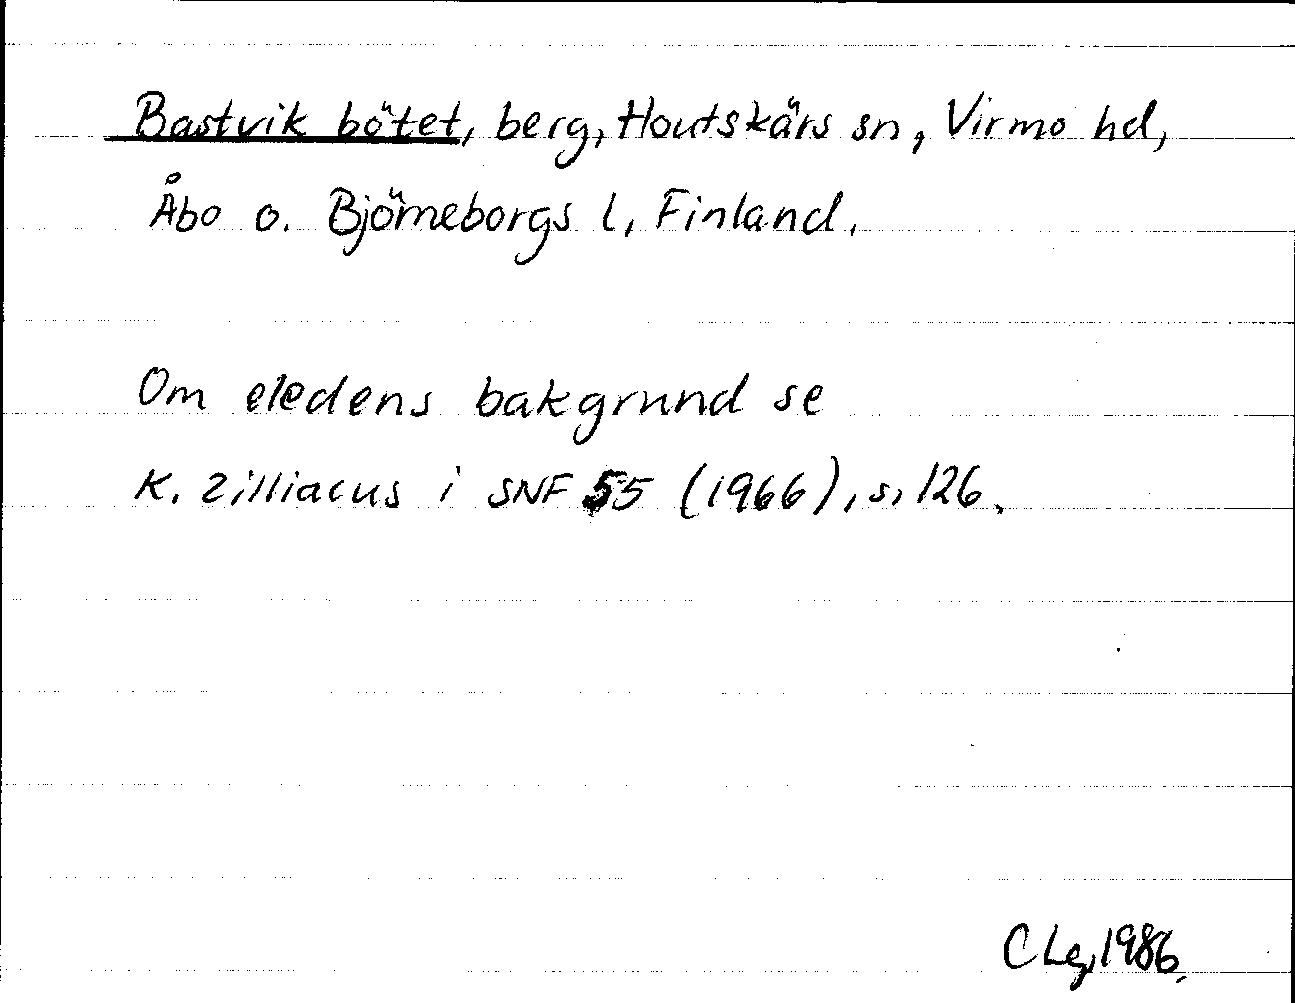 Bastvik bötet, berg, Houtskärs sn, Virmo hd,
Åbo o. Björneborgs l, Finland.
Om eledens bakgrund se
K. Zilliacus i SNF 55 (1966), s. 126.
C Lg, 1986.